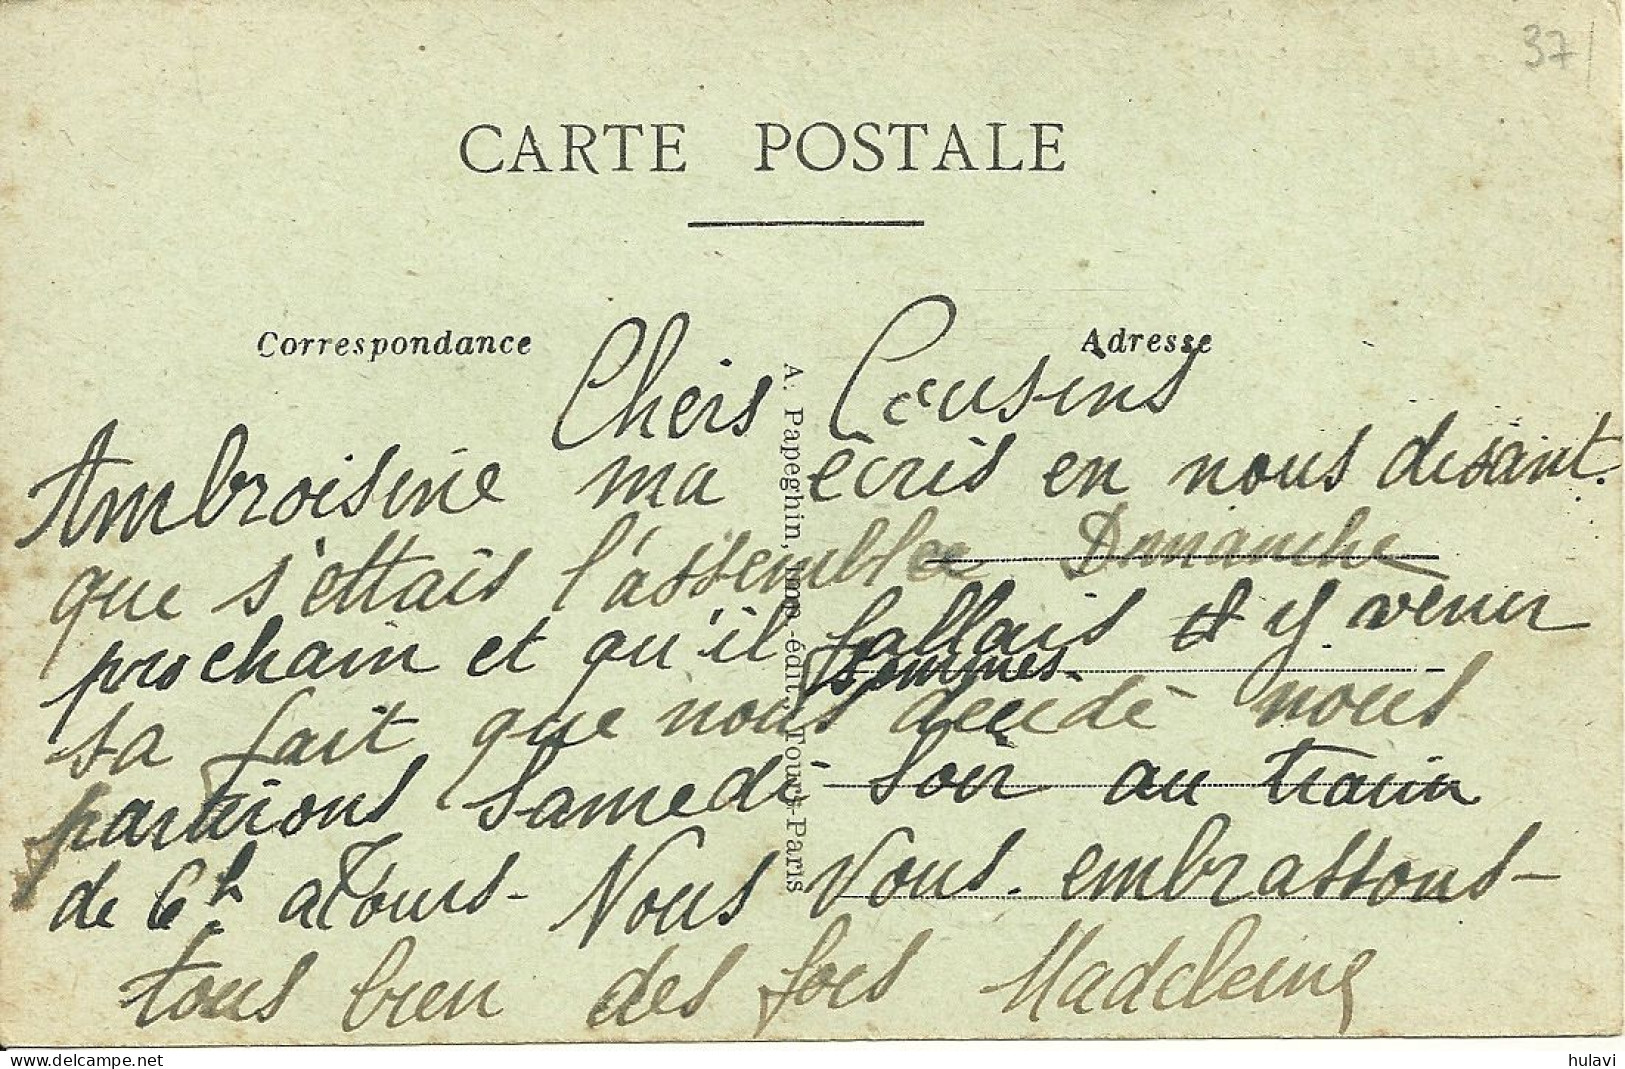 37
CARTE POSTALE
Correspondance
Adresse
A. Papeghin, imp.-édit., Tours-Paris
Chers Cousins
Ambroisine ma écris en nous disant.
que s'ettais l'assemblee Dimanche
prochain et qu'il fallais y venir
sommes
sa fait que nous décidé nous
partirons Samedi Soir au train
de 6h a Tours - Nous vous. embrassons -
tous bien des fois Madeleine
hulavi
delcampe.net